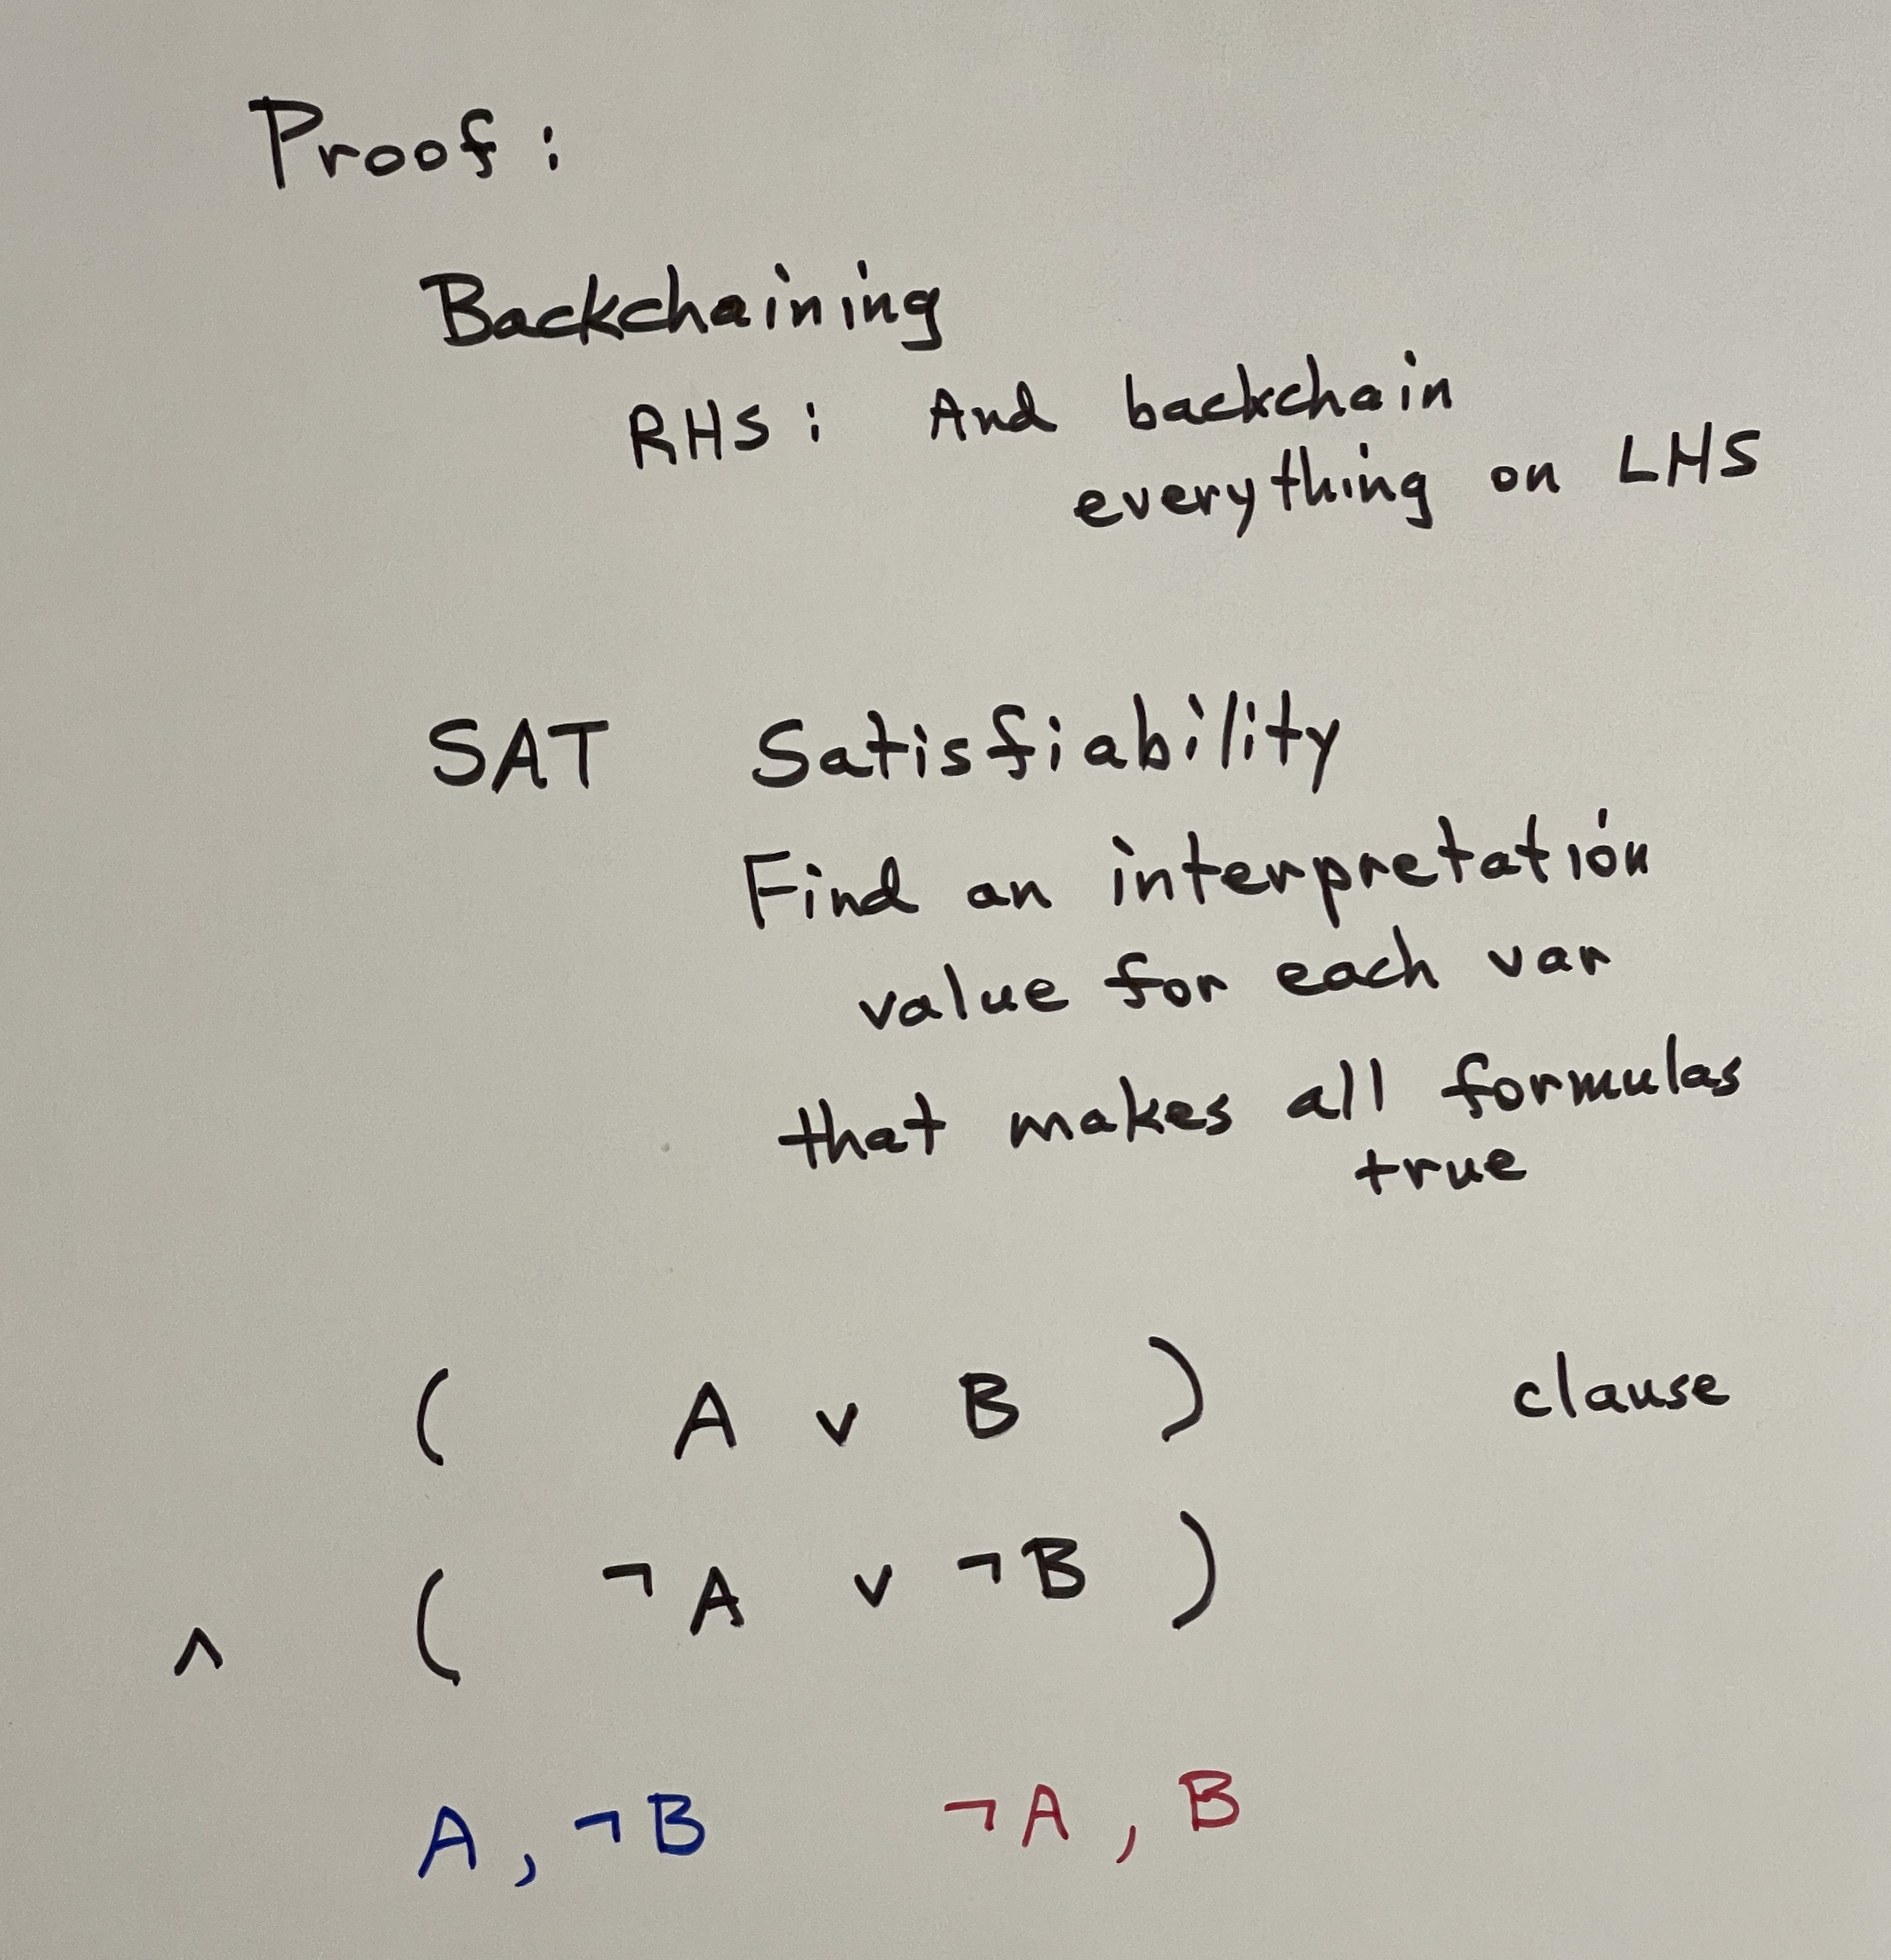 Proof:
Backchaining
RHS: And backchain
everything on LHS
SAT Satisfiability
Find an interpretation
value for each var
that makes all formulas
true
( A ∨ B ) clause
∧ ( ¬A ∨ ¬B )
A, ¬B ¬A, B